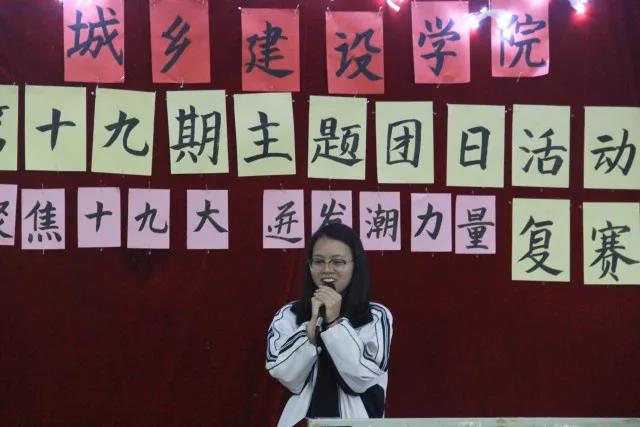 城乡建设学院
第十九期主题团日活动
聚焦十九大 迸发潮力量
复赛